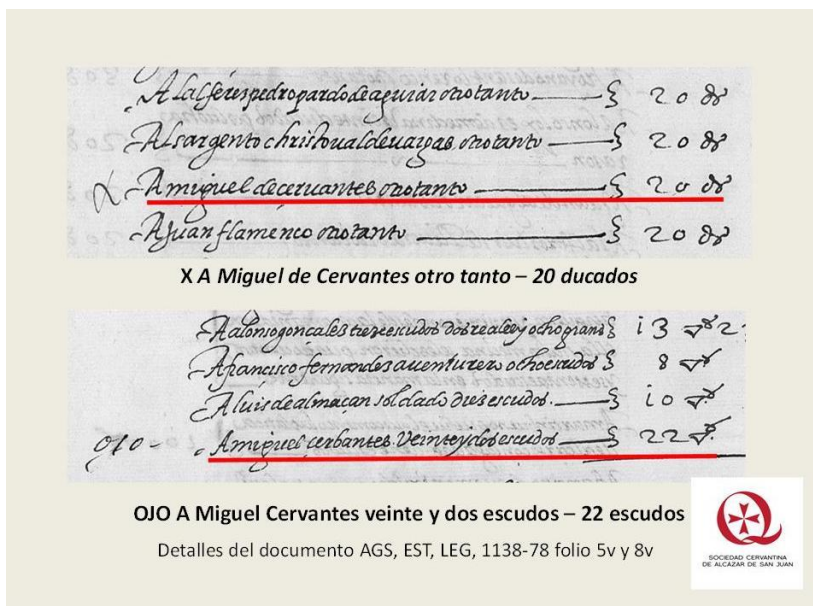 A lalferez pedro pardo de aguiar otro tanto 20 ds
Al sargento christoual de uargas otro tanto 20 ds
X A miguel de ceruantes otro tanto 20 ds
A juan flamenco otro tanto 20 ds
X A Miguel de Cervantes otro tanto – 20 ducados
A alonso gonçales treze escudos dos reales y ocho grans i3 2
A francisco fernandes auenturero ocho escudos 8
A luis de almaçan soldado dies escudos i0
ojo A miguel cerbantes Veinte y dos escudos 22
OJO A Miguel Cervantes veinte y dos escudos – 22 escudos
Detalles del documento AGS, EST, LEG, 1138-78 folio 5v y 8v
SOCIEDAD CERVANTINA
DE ALCAZAR DE SAN JUAN